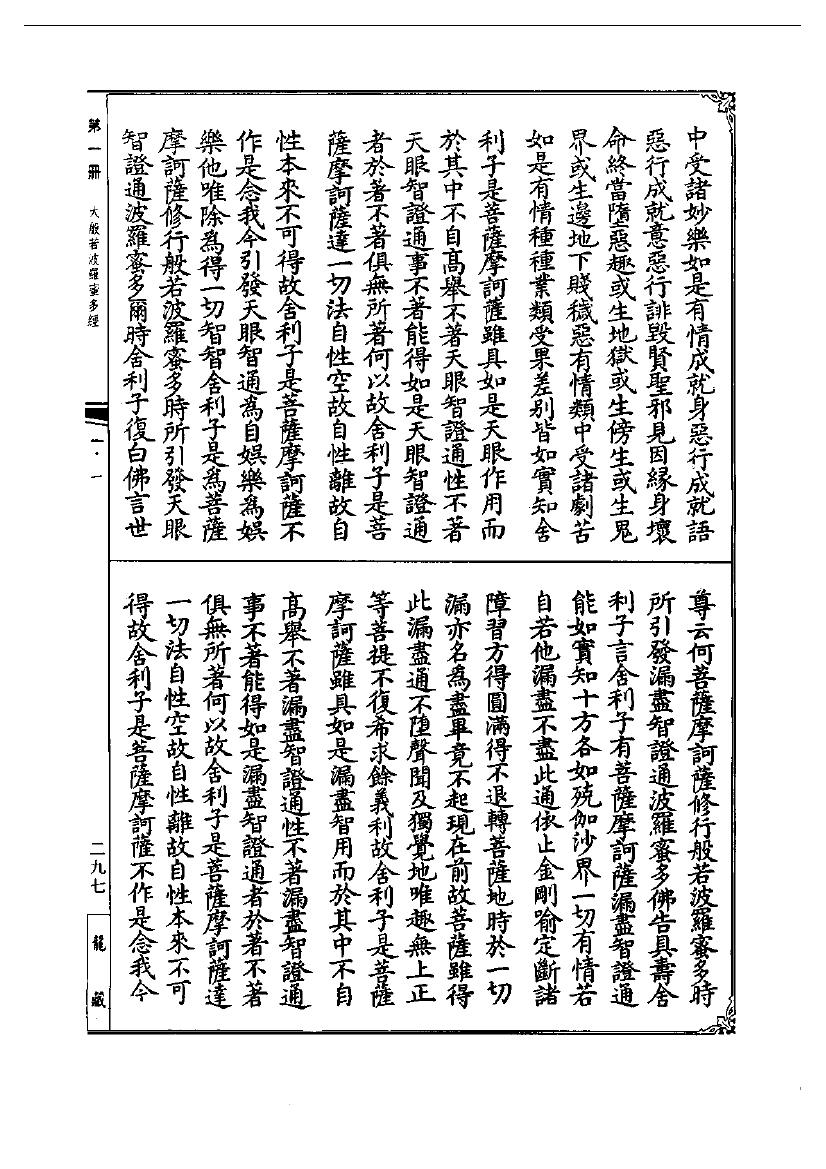 中受諸妙樂如是有情成就身惡行成就語
惡行成就意惡行誹毀賢聖邪見因緣身壞
命終當墮惡趣或生地獄或生傍生或生鬼
界或生邊地下賤穢惡有情類中受諸劇苦
如是有情種種業類受果差別皆如實知舍
利子是菩薩摩訶薩雖具如是天眼作用而
於其中不自高舉不著天眼智證通性不著
天眼智證通事不著能得如是天眼智證通
者於著不著俱無所著何以故舍利子是菩
薩摩訶薩達一切法自性空故自性離故自
性本來不可得故舍利子是菩薩摩訶薩不
作是念我今引發天眼智通為自娛樂為娛
樂他唯除為得一切智智舍利子是為菩薩
摩訶薩修行般若波羅蜜多時所引發天眼
智證通波羅蜜多爾時舍利子復白佛言世
尊云何菩薩摩訶薩修行般若波羅蜜多時
所引發漏盡智證通波羅蜜多佛告具壽舍
利子言舍利子有菩薩摩訶薩漏盡智證通
能如實知十方各如殑伽沙界一切有情若
自若他漏盡不盡此通依止金剛喻定斷諸
障習方得圓滿得不退轉菩薩地時於一切
漏亦名為盡畢竟不起現在前故菩薩雖得
此漏盡通不墮聲聞及獨覺地唯趣無上正
等菩提不復希求餘義利故舍利子是菩薩
摩訶薩雖具如是漏盡智用而於其中不自
高舉不著漏盡智證通性不著漏盡智證通
事不著能得如是漏盡智證通者於著不著
俱無所著何以故舍利子是菩薩摩訶薩達
一切法自性空故自性離故自性本來不可
得故舍利子是菩薩摩訶薩不作是念我今
第一冊 大般若波羅蜜多經
一·一
二九七
龍藏